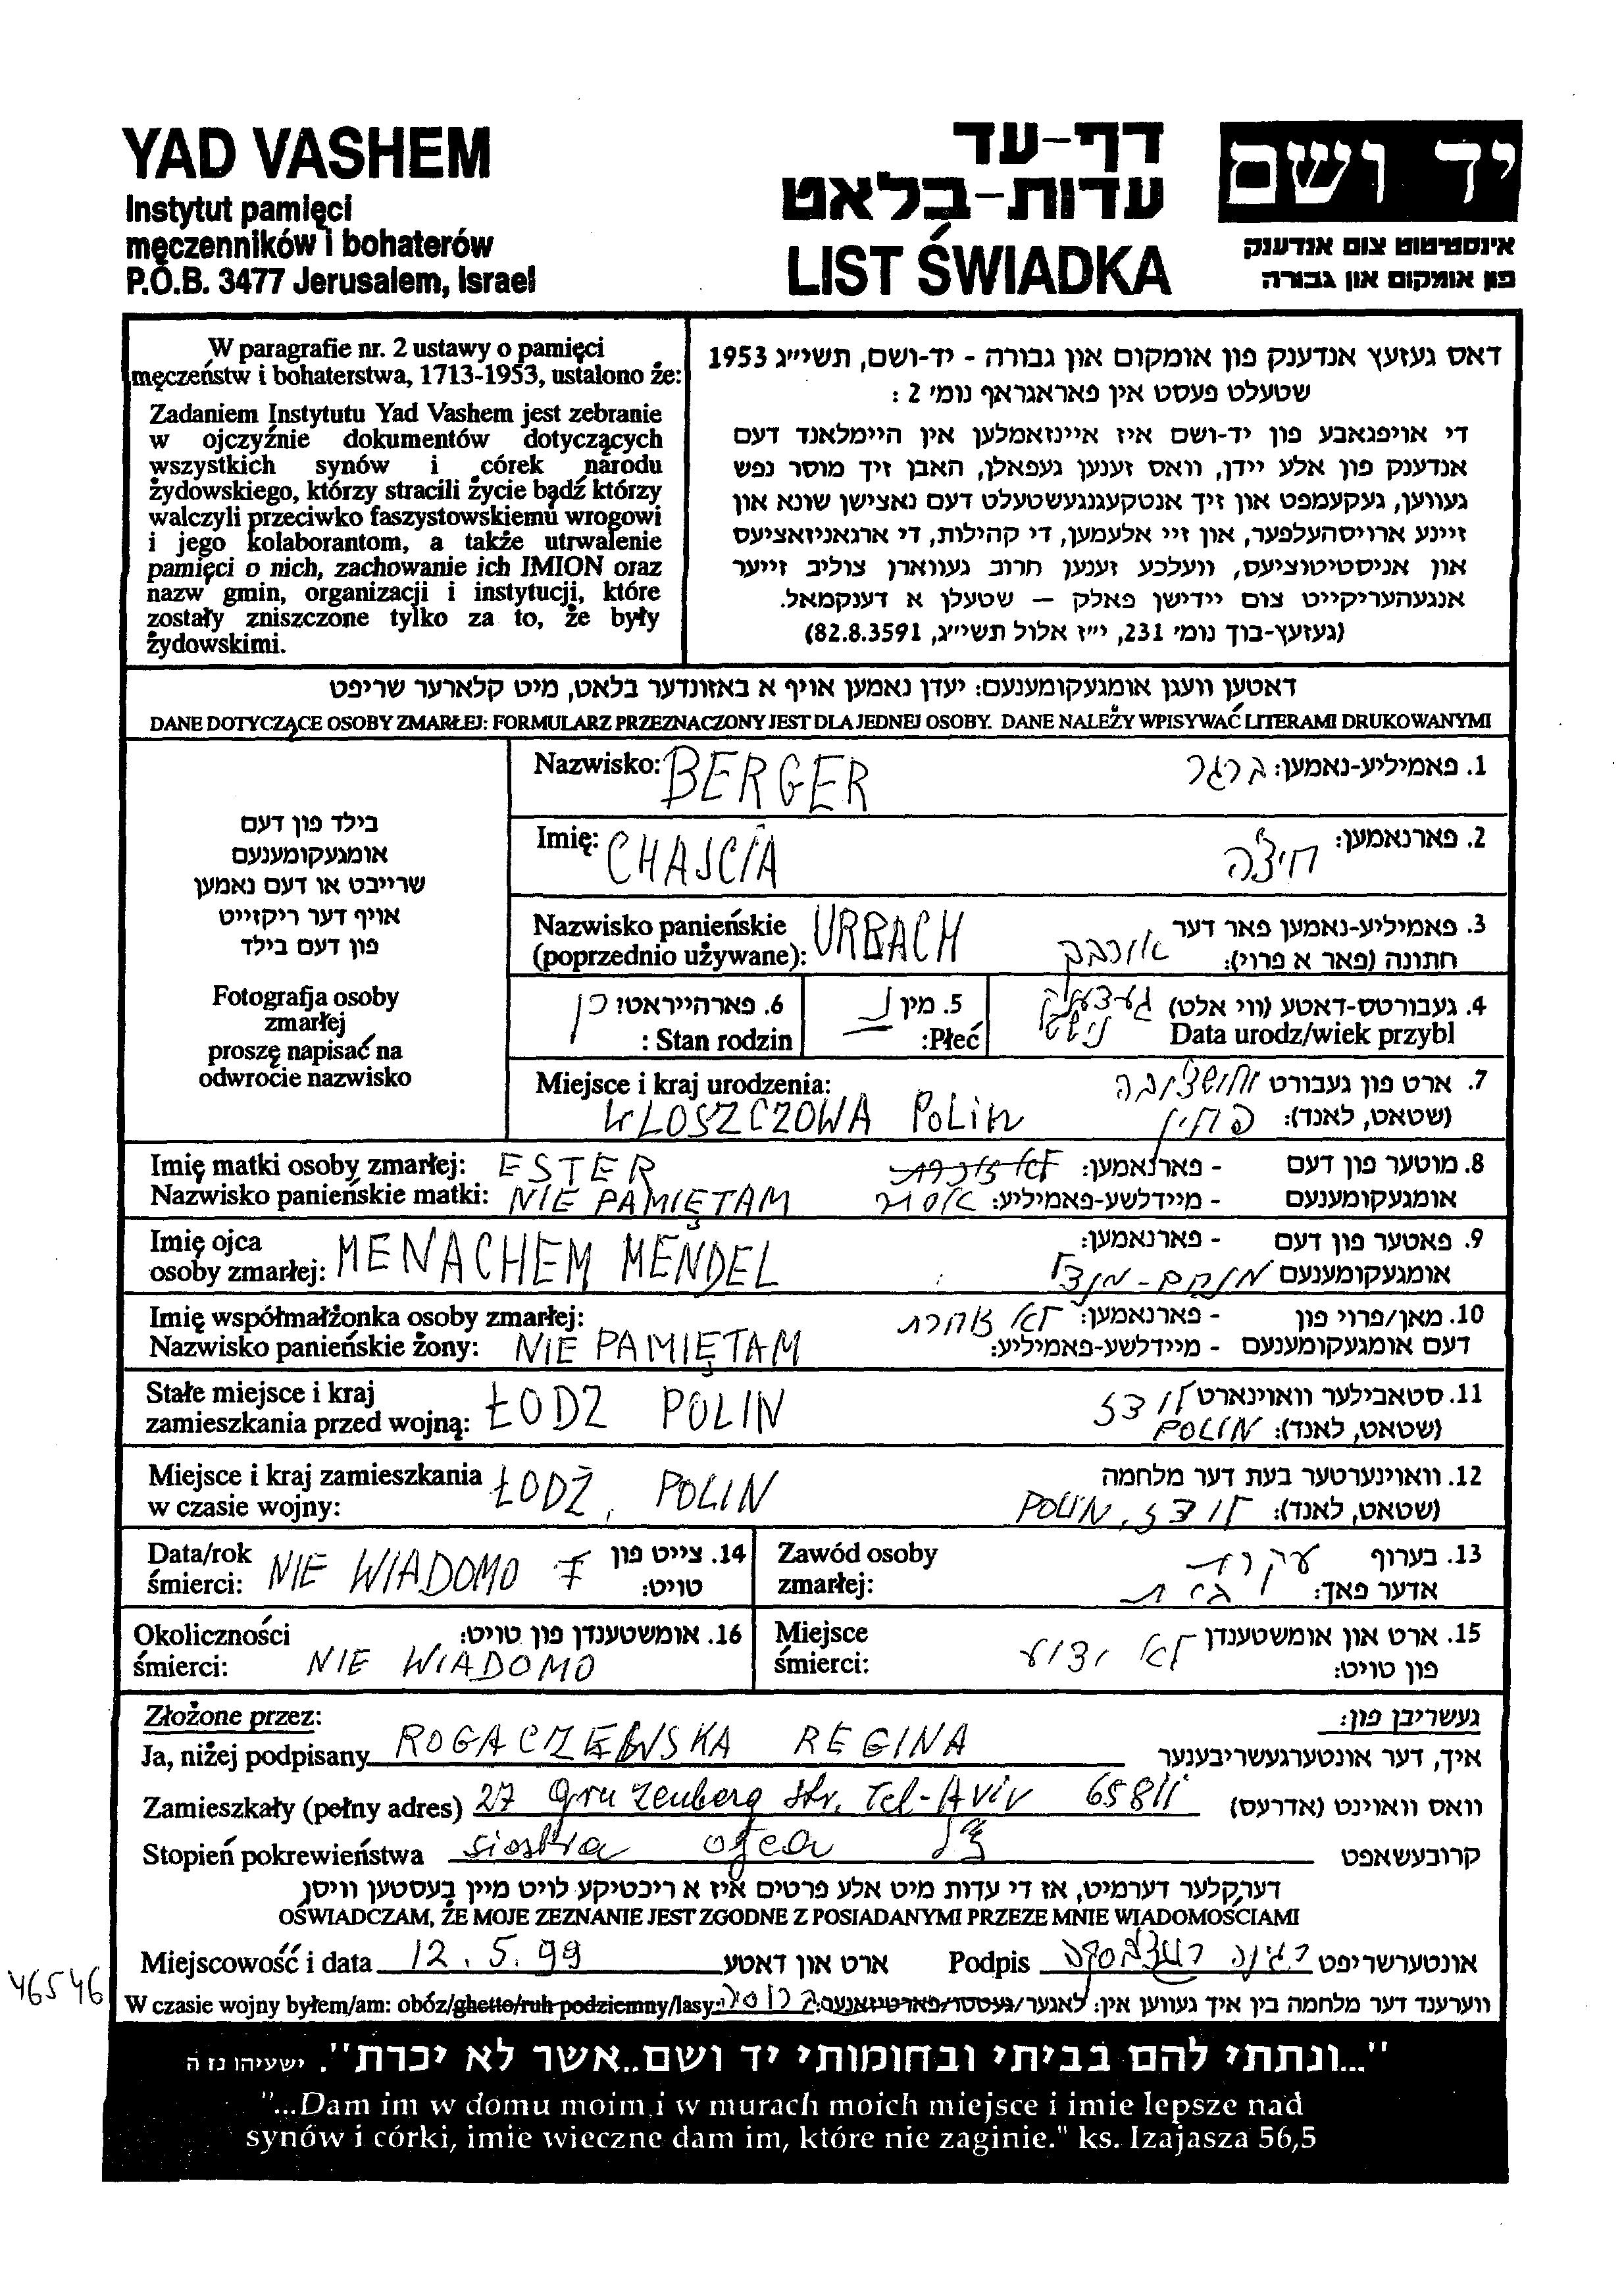 YAD VASHEM
Instytut pamięci
męczenników i bohaterów
P.O.B. 3477 Jerusalem, Israel
דף-עד
עדות-בלאט
LIST ŚWIADKA
יד ושם
אינסטיטוט צום אנדענק
פון אומקום און גבורה
W paragrafie nr. 2 ustawy o pamięci
męczeństw i bohaterstwa, 1713-1953, ustalono że:
Zadaniem Instytutu Yad Vashem jest zebranie
w ojczyźnie dokumentów dotyczących
wszystkich synów i córek narodu
żydowskiego, którzy stracili życie bądź którzy
walczyli przeciwko faszystowskiemu wrogowi
i jego kolaborantom, a także utrwalenie
pamięci o nich, zachowanie ich IMION oraz
nazw gmin, organizacji i instytucji, które
zostały zniszczone tylko za to, że były
żydowskimi.
דאס געזעץ אנדענק פון אומקום און גבורה - יד-ושם, תשי״ג 1953
שטעלט פעסט אין פאראגראף נומ׳ 2 :
די אויפגאבע פון יד-ושם איז איינזאמלען אין היימלאנד דעם
אנדענק פון אלע יידן, וואס זענען געפאלן, האבן זיך מוסר נפש
געווען, געקעמפט און זיך אנטקעגנגעשטעלט דעם נאצישן שונא און
זיינע ארויסהעלפער, און זיי אלעמען, די קהילות, די ארגאניזאציעס
און אניסטיטוציעס, וועלכע זענען חרוב געווארן צוליב זייער
אנגעהעריקייט צום יידישן פאלק – שטעלן א דענקמאל.
(געזעץ-בוך נומ׳ 231, י״ז אלול תשי״ג, 82.8.3591)
דאטען וועגן אומגעקומענעם: יעדן נאמען אויף א באזונדער בלאט, מיט קלארער שריפט
DANE DOTYCZĄCE OSOBY ZMARŁEJ: FORMULARZ PRZEZNACZONY JEST DLA JEDNEJ OSOBY. DANE NALEŻY WPISYWAĆ LITERAMI DRUKOWANYMI
בילד פון דעם
אומגעקומענעם
שרייבט או דעם נאמען
אויף דער ריקזייט
פון דעם בילד
Fotografja osoby
zmarłej
proszę napisać na
odwrocie nazwisko
Nazwisko: BERGER
1. פאמיליע-נאמען: ברגר
Imię: CHAJCIA
2. פארנאמען: חיצה
Nazwisko panieńskie
(poprzednio używane): URBACH
3. פאמיליע-נאמען פאר דער
חתונה (פאר א פרוי): אורבך
4. געבורטס-דאטע (ווי אלט)
Data urodz/wiek przybl
5. מין נ
Płeć:
6. פארהייראט? כן
Stan rodzin :
Miejsce i kraj urodzenia:
WLOSZCZOWA POLIN
7. ארט פון געבורט ולושצ׳ובה
(שטאט, לאנד): פולין
Imię matki osoby zmarłej: ESTER
Nazwisko panieńskie matki: NIE PAMIĘTAM
8. מוטער פון דעם - פארנאמען: לא זוכרת
אומגעקומענעם - מיידלשע-פאמיליע: אסתר
Imię ojca
osoby zmarłej: MENACHEM MENDEL
9. פאטער פון דעם - פארנאמען:
אומגעקומענעם מנחם-מנדל
Imię współmałżonka osoby zmarłej:
Nazwisko panieńskie żony: NIE PAMIĘTAM
10. מאן/פרוי פון - פארנאמען: לא זוכרת
דעם אומגעקומענעם - מיידלשע-פאמיליע:
Stałe miejsce i kraj
zamieszkania przed wojną: ŁODZ POLIN
11. סטאבילער וואוינארט לודז
(שטאט, לאנד): POLIN
Miejsce i kraj zamieszkania
w czasie wojny: ŁODŹ, POLIN
12. וואוינערטער בעת דער מלחמה
(שטאט, לאנד): לודז, POLIN
Data/rok
śmierci: NIE WIADOMO
14. צייט פון
טויט:
Zawód osoby
zmarłej:
13. בערוף עקרת
אדער פאך: בית
Okoliczności
śmierci: NIE WIADOMO
16. אומשטענדן פון טויט:
Miejsce
śmierci:
15. ארט און אומשטענדן לא ידוע
פון טויט:
Złożone przez:
געשריבן פון:
Ja, niżej podpisany ROGACZEWSKA REGINA איך, דער אונטערגעשריבענער
Zamieszkały (pełny adres) 27 Gruzenberg str. Tel-Aviv 65811 וואס וואוינט (אדרעס)
Stopień pokrewieństwa siostra ojca קרובעשאפט
דערקלער דערמיט, אז די עדות מיט אלע פרטים איז א ריכטיקע לויט מיין בעסטען וויסן
OŚWIADCZAM, ŻE MOJE ZEZNANIE JEST ZGODNE Z POSIADANYMI PRZEZE MNIE WIADOMOŚCIAMI
Miejscowość i data 12.5.99 ארט און דאטע Podpis אונטערשריפט
46546
W czasie wojny byłem/am: obóz/ghetto/ruh podziemny/lasy: ברוסיה ווערענד דער מלחמה בין איך געווען אין: לאגער/געטטר/פארטיזאנעם:
"...ונתתי להם בביתי ובחומותי יד ושם..אשר לא יכרת". ישעיהו נז ה
"...Dam im w domu moim i w murach moich miejsce i imie lepsze nad
synów i córki, imie wieczne dam im, które nie zaginie." ks. Izajasza 56,5